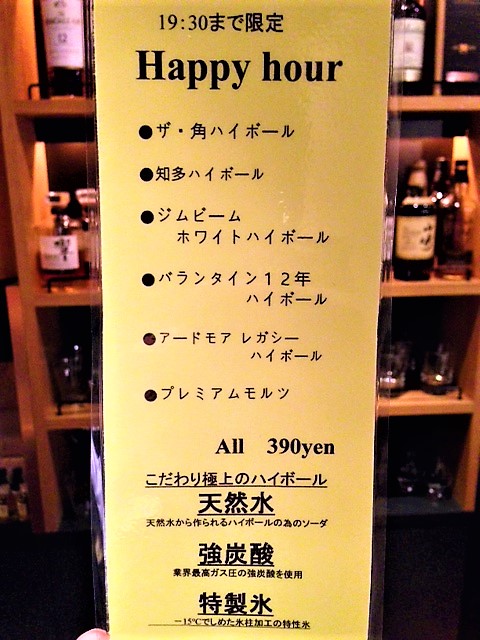 19:30まで限定
Happy hour
●ザ・角ハイボール
●知多ハイボール
●ジムビーム
ホワイトハイボール
●バランタイン１２年
ハイボール
●アードモア レガシー
ハイボール
●プレミアムモルツ
All 390yen
こだわり極上のハイボール
天然水
天然水から作られるハイボールの為のソーダ
強炭酸
業界最高ガス圧の強炭酸を使用
特製氷
－15℃でしめた氷柱加工の特性氷
12